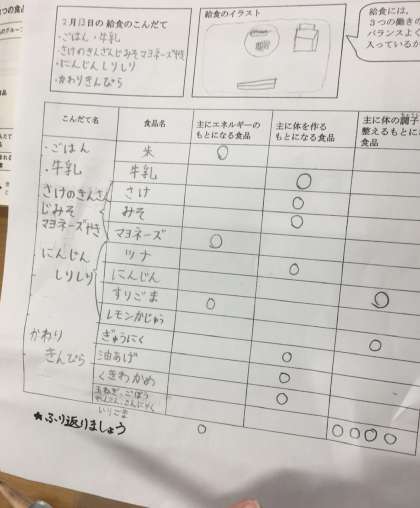 2月13日の給食のこんだて
・ごはん・牛乳
・さけのきんさんじみそマヨネーズやき
・にんじんしりしり
・かわりきんぴら
給食のイラスト
給食には、
3つの働きの
バランスよく
入っているか
こんだて名
食品名
主にエネルギーの
もとになる食品
主に体を作る
もとになる食品
主に体の調子
整えるもとに
食品
・ごはん
米
・牛乳
牛乳
さけのきんさん
じみそ
マヨネーズやき
さけ
みそ
マヨネーズ
にんじん
しりしり
ツナ
にんじん
すりごま
レモンかじゅう
かわり
きんぴら
ぎゅうにく
油あげ
くきわかめ
玉ねぎ・ごぼう
にんじん・こんにゃく
いりごま
★ふり返りましょう